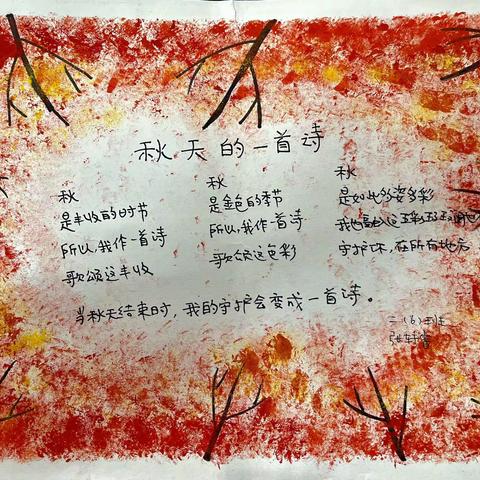 秋天的一首诗
秋
是丰收的时节
所以,我作一首诗
歌颂这丰收
秋
是金色的季节
所以,我作一首诗
歌颂这色彩
秋
是如此多姿多彩
我也融入这五彩
守护你,在所有地方
当秋天结束时,我的守护会变成一首诗。
二(6)班
张轩